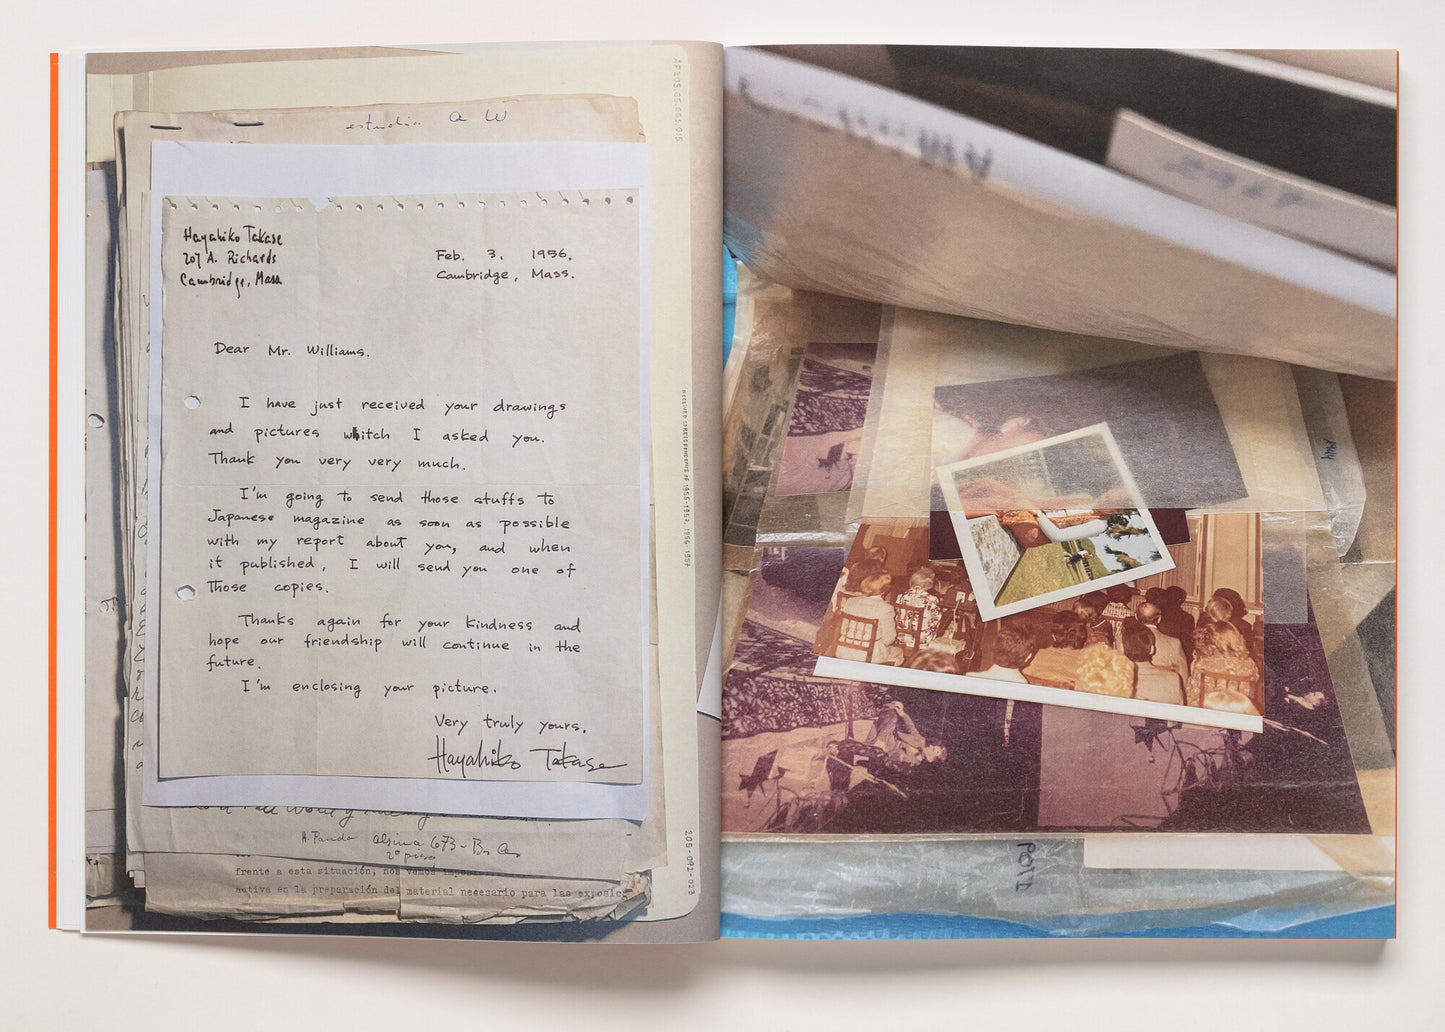 estudio a W
Hayahiko Takase
207 A. Richards
Cambridge, Mass
Feb. 3, 1956,
Cambridge, Mass.
Dear Mr. Williams.
I have just received your drawings
and pictures whitch I asked you.
Thank you very very much.
I'm going to send those stuffs to
Japanese magazine as soon as possible
with my report about you, and when
it published, I will send you one of
those copies.
Thanks again for your kindness and
hope our friendship will continue in the
future.
I'm enclosing your picture.
Very truly yours,
Hayahiko Takase
A. Pando Alsina 673 - Bs As
2º piso
frente a esta situación, nos vemos
activa en la preparación del material necesario para las
205-092-023
POSTI